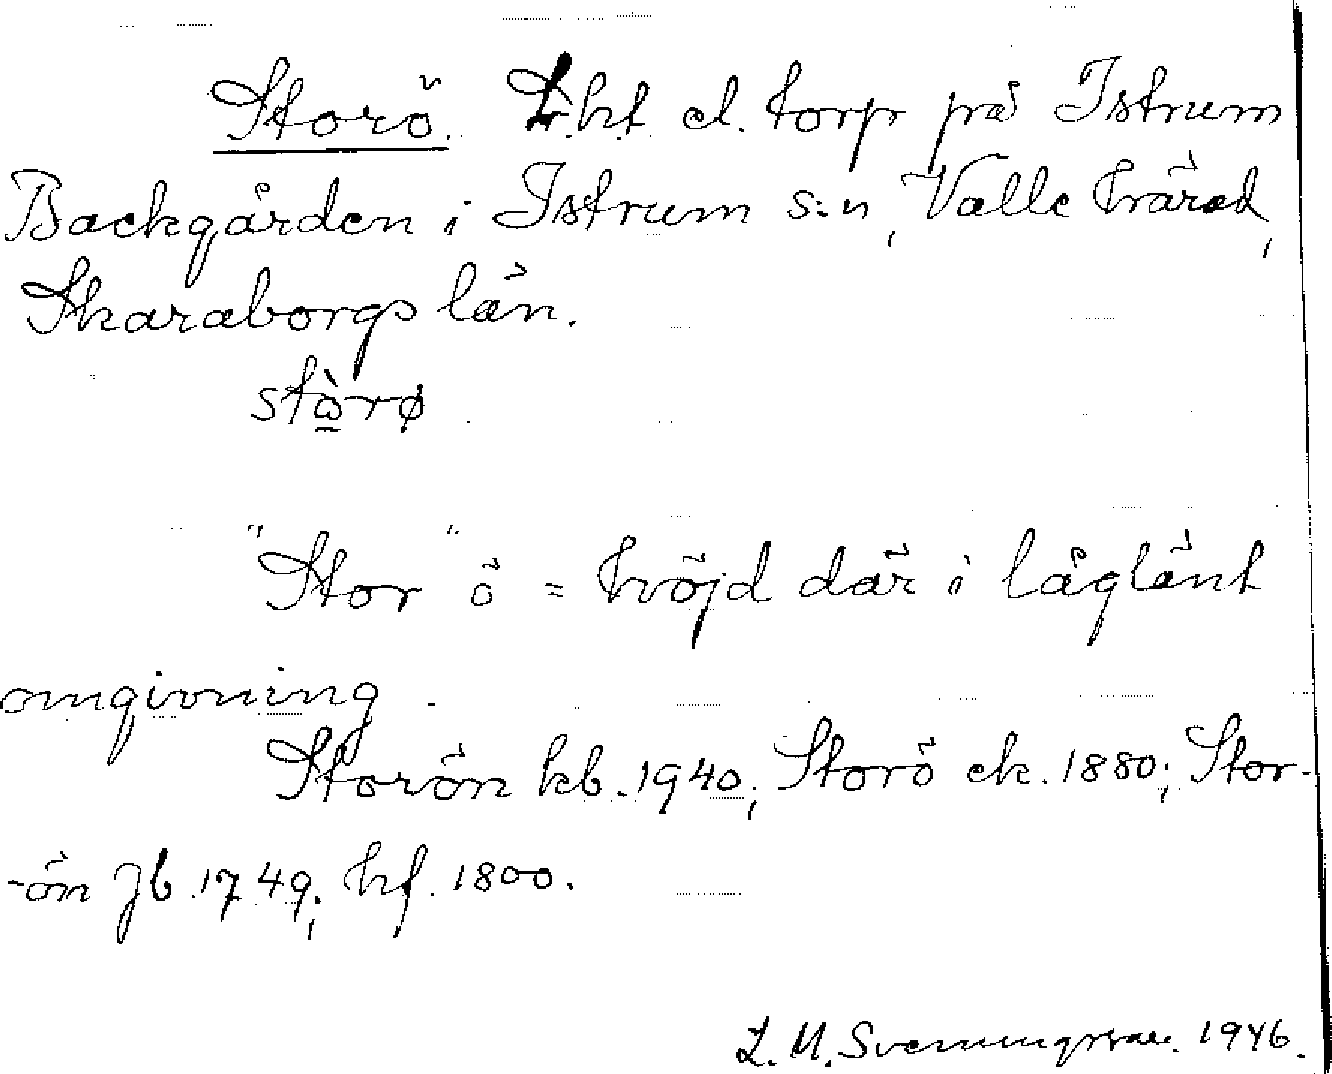 Storö. L:ht el. torp på Istrum
Backgården i Istrum s:n, Valle härad,
Skaraborgs län.
stò̲rø
"Stor" ö = höjd där i låglänt
omgivning.
Storön kb. 1940; Storö ek. 1880; Stor-
-ön Jb. 1749; hf. 1800.
1946.